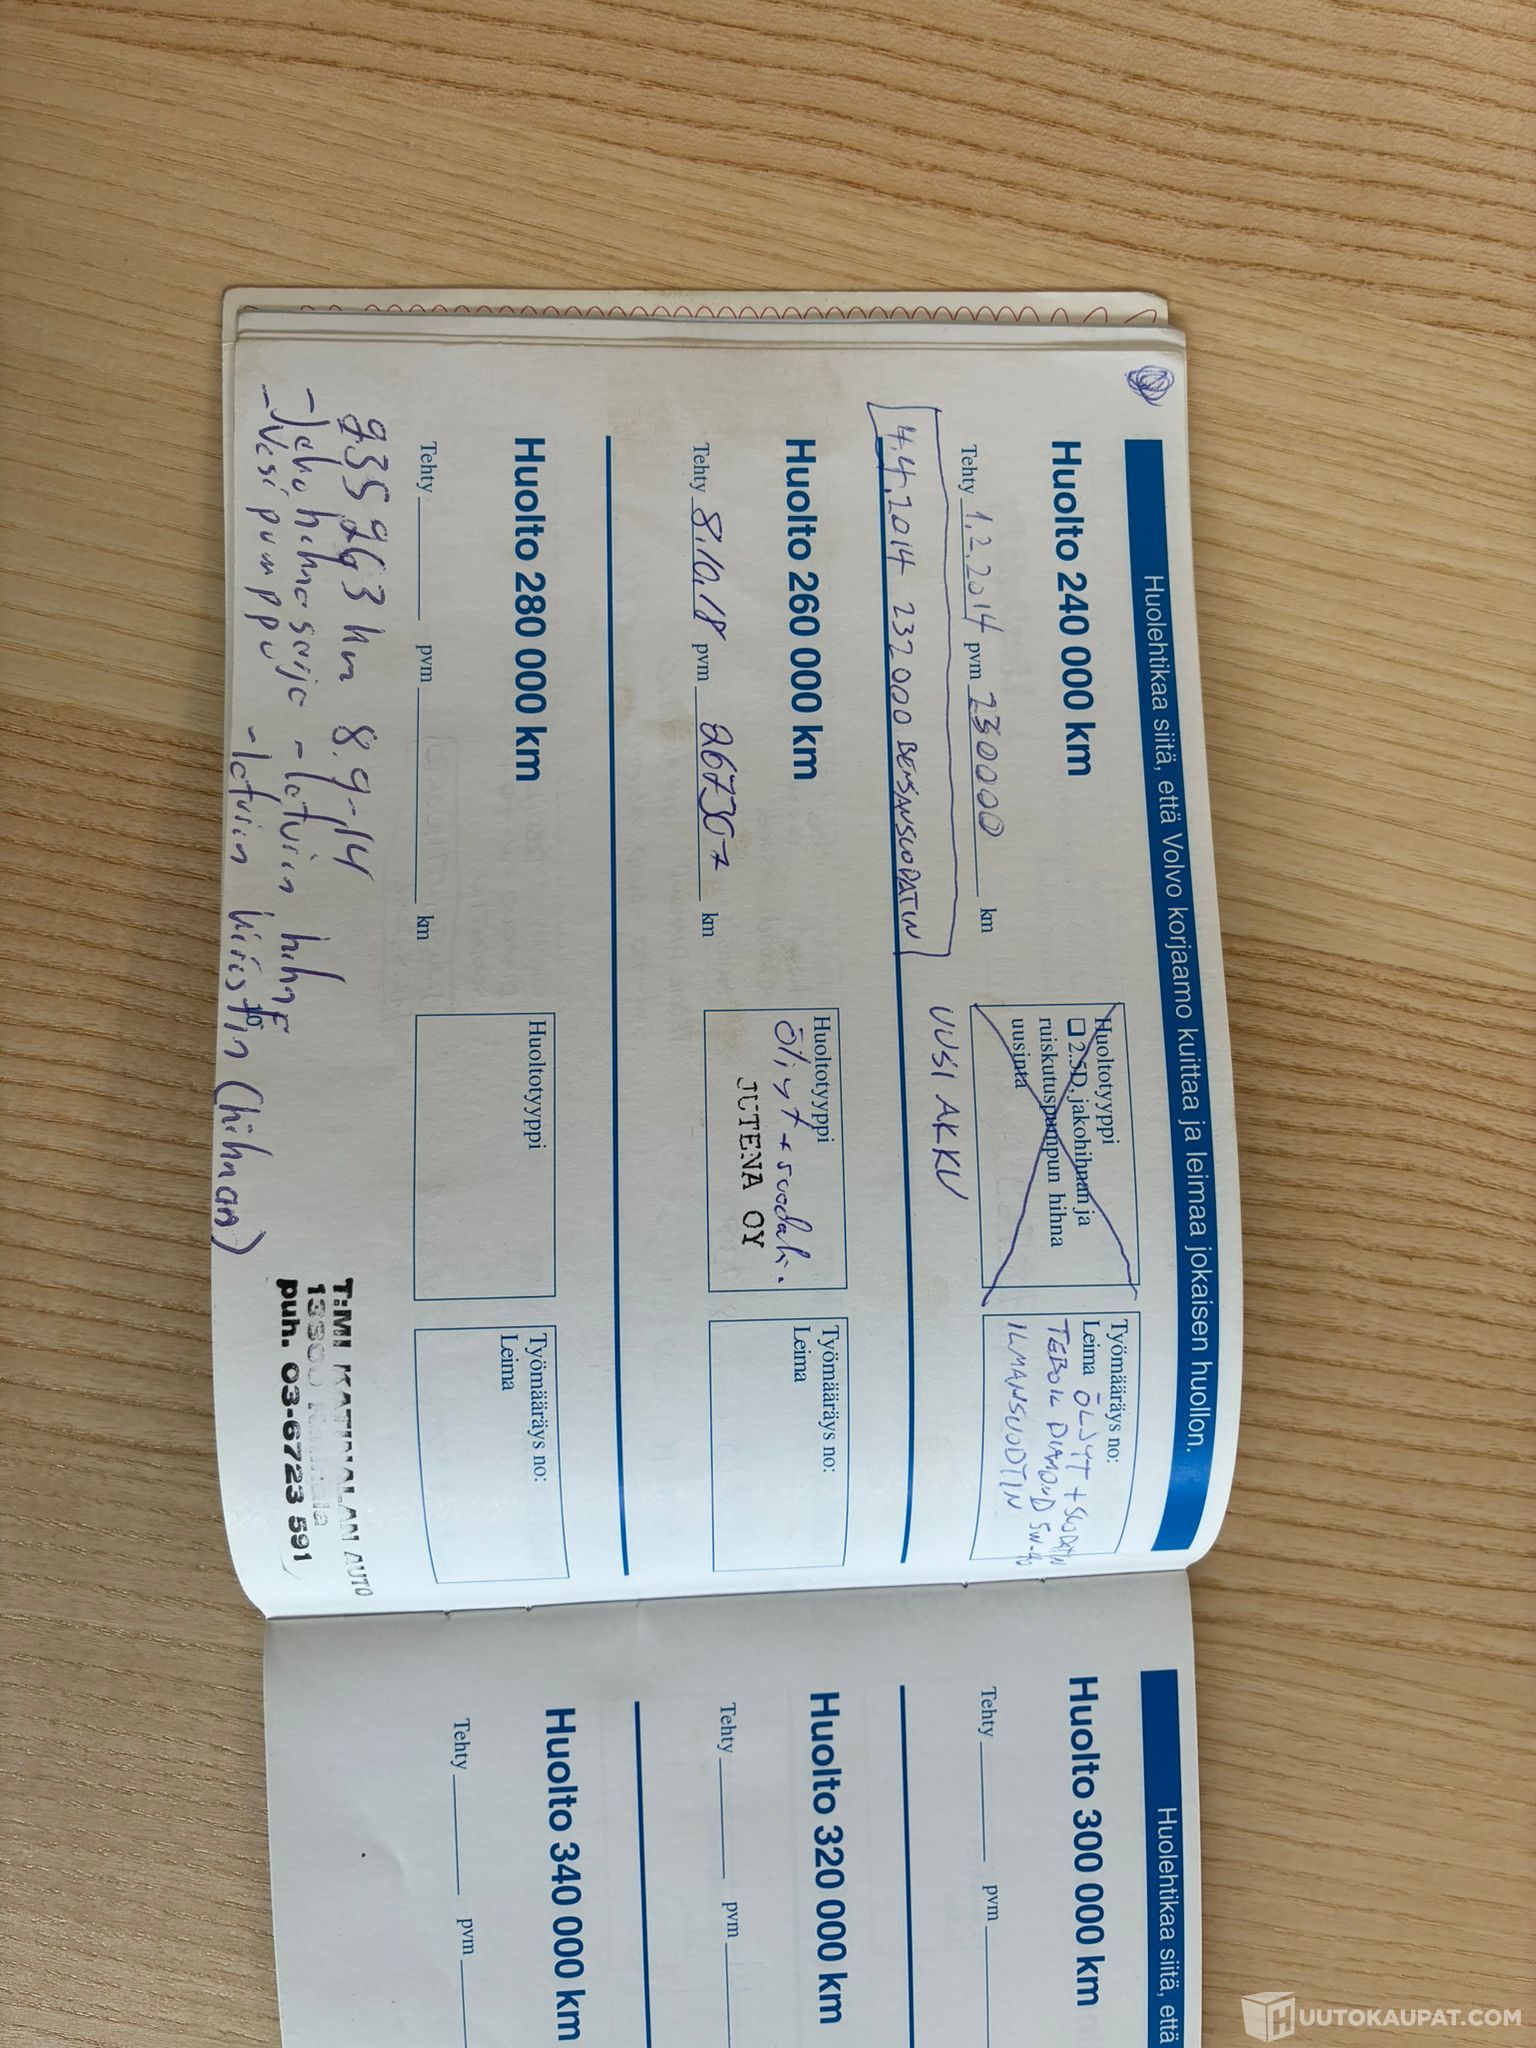 Huolehtikaa siitä, että Volvo korjaamo kuittaa ja leimaa jokaisen huollon.
Huolto 240 000 km
Tehty 1.2.2014 pvm 230000 km
Huoltotyyppi
2.5D, jakohihnan ja
ruiskutuspumpun hihna
uusinta
Työmääräys no:
Leima ÖLJYT + SUODATIN
TEBOIL DIAMOND 5W-40
ILMANSUODTIN
UUSI AKKU
4.4.2014 232000 BENSANSUODATIN
Huolto 260 000 km
Tehty 8.10.18 pvm 267307 km
Huoltotyyppi
Öljyt + suodati.
JUTENA OY
Työmääräys no:
Leima
Huolto 280 000 km
Tehty pvm km
Huoltotyyppi
Työmääräys no:
Leima
235963 km 8.9-14
- Jakohihnasarja - laturin hihna
- Vesipumppu - laturin kiristin (hihnan)
T:MI KATINALAN AUTO
puh. 03-6723 591
Huolehtikaa siitä, että
Huolto 300 000 km
Tehty pvm
Huolto 320 000 km
Tehty pvm
Huolto 340 000 km
Tehty pvm
HUUTOKAUPAT.COM